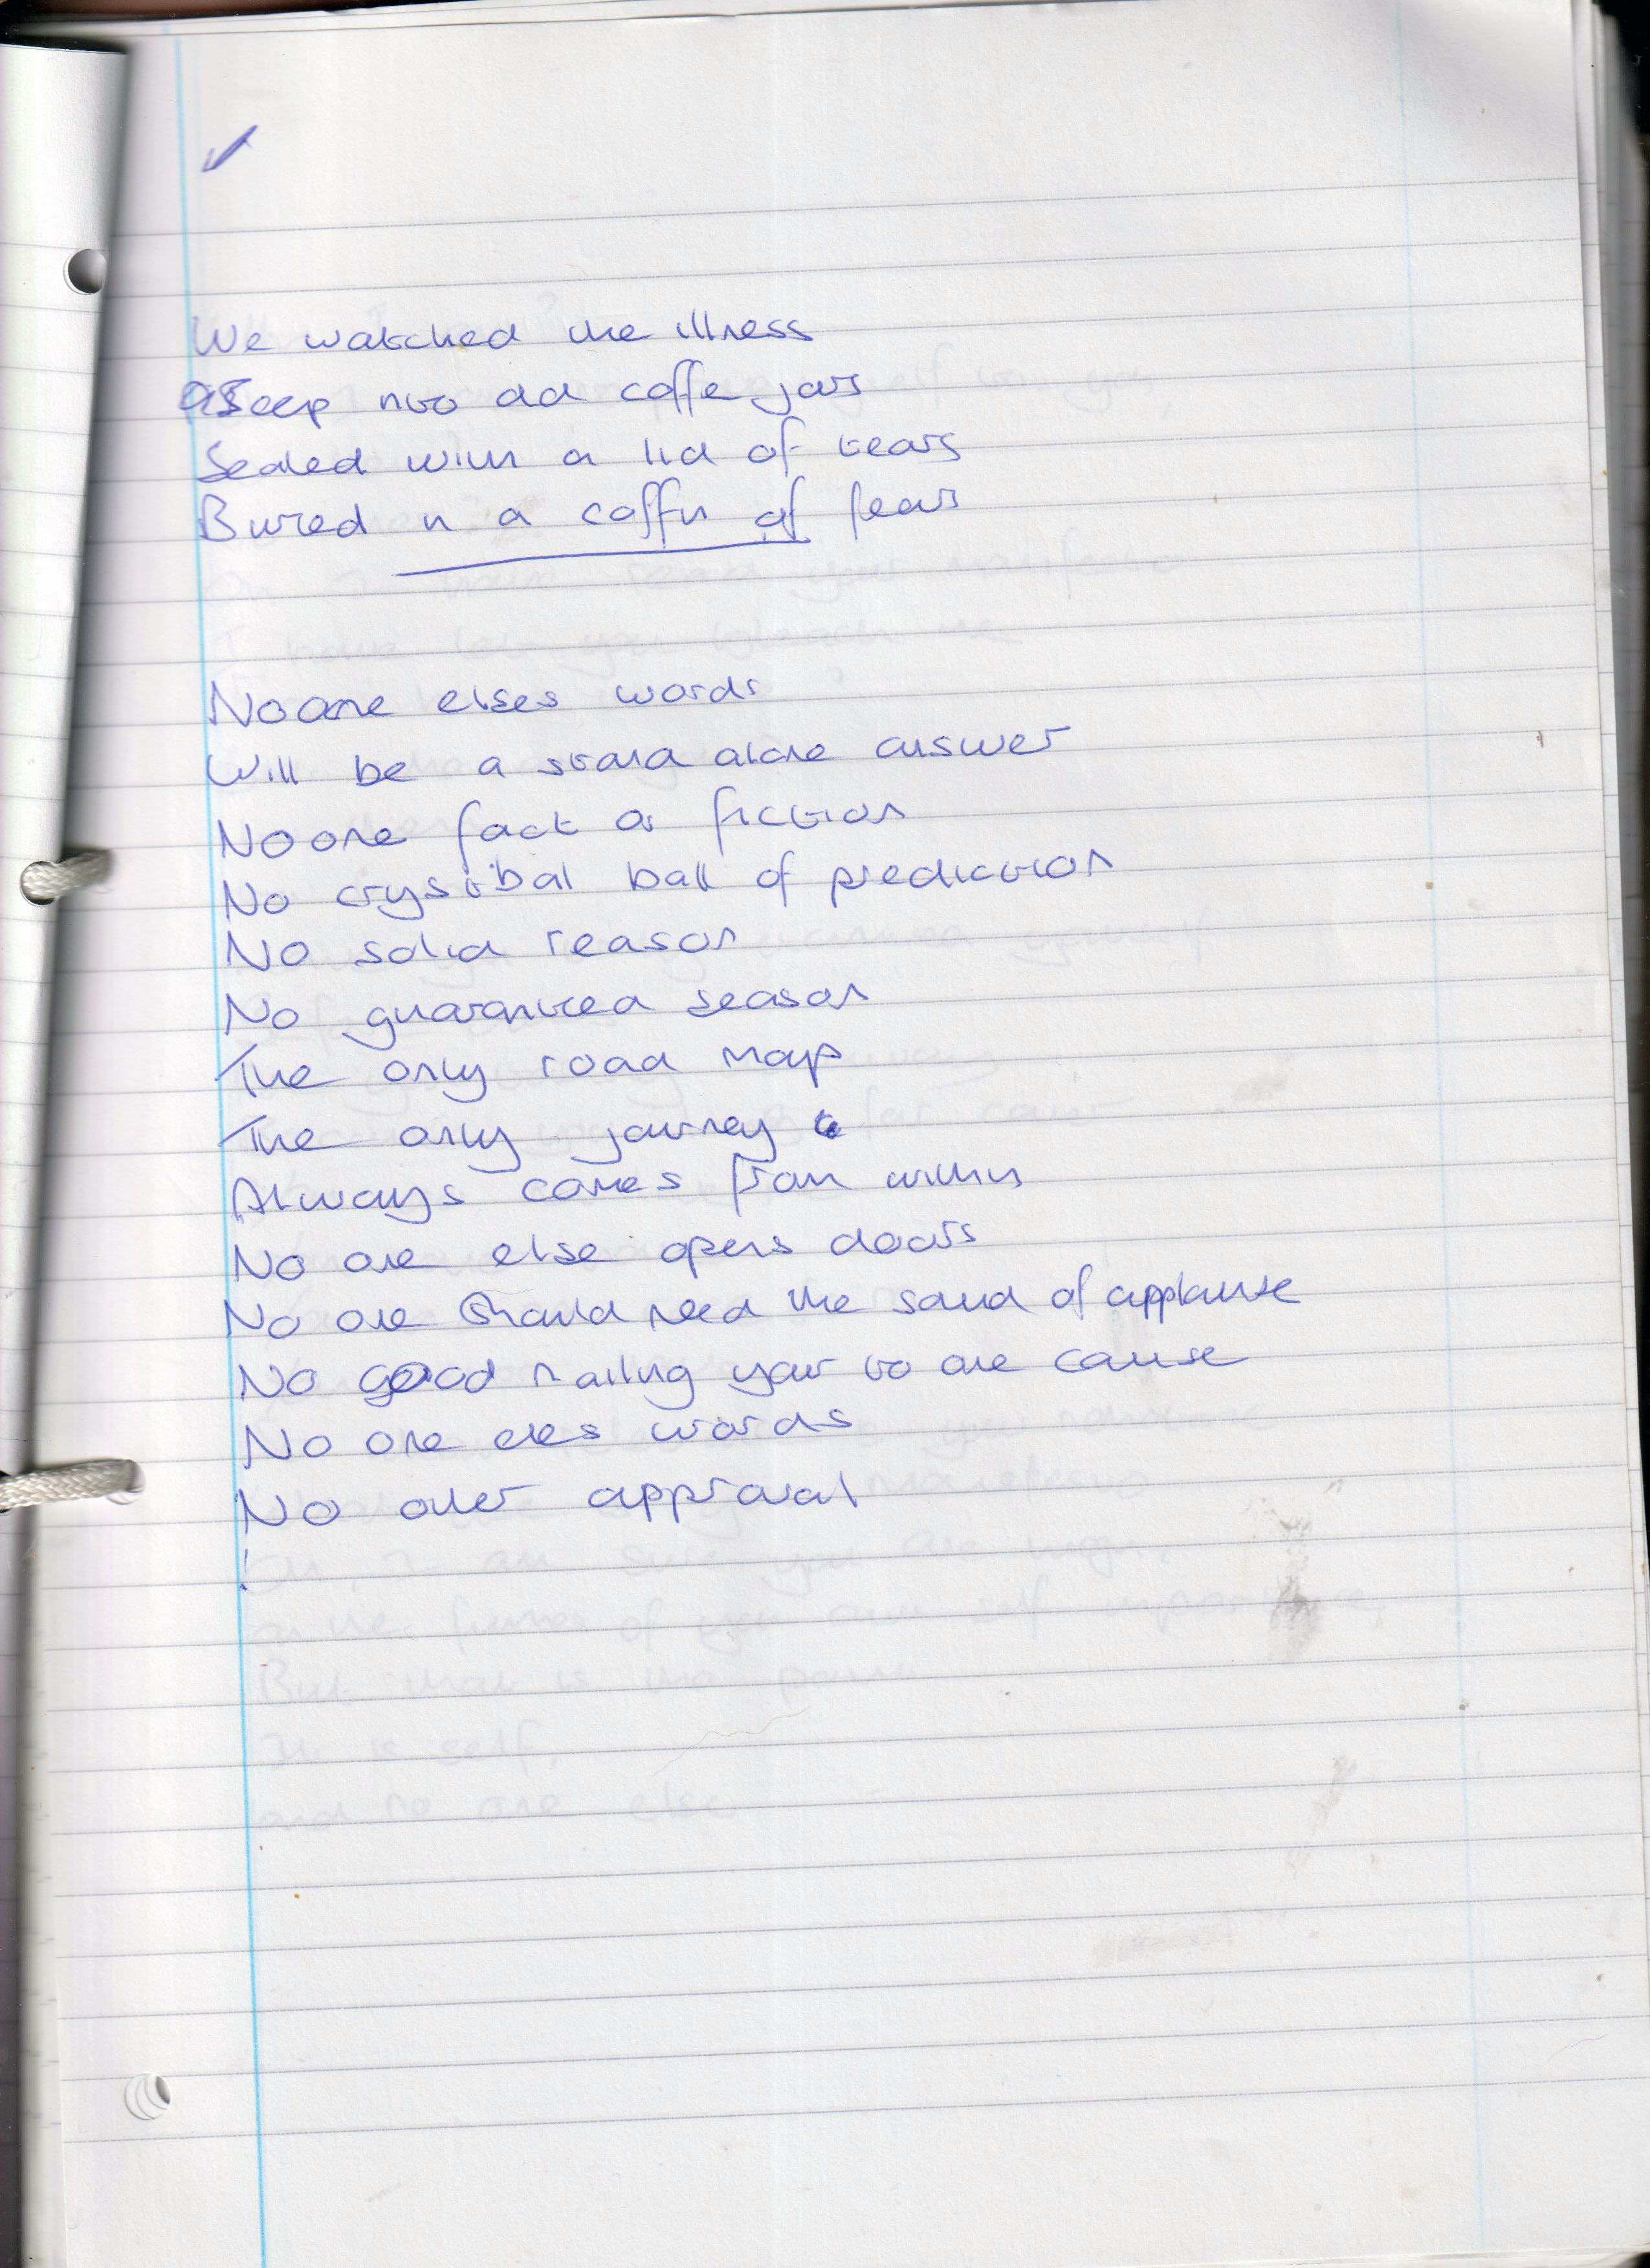 We watched the illness
Seep into old coffe jars
Sealed with a lid of tears
Buried in a coffin of fears
No one elses words
Will be a stand alone answer
No one fact or fiction
No crystbal ball of prediction
No solid reason
No guaranteed season
The only road map
The only journey
Always comes from within
No one else opens doors
No one should need the sound of applause
No good nailing your to one cause
No one eles words
No other approval